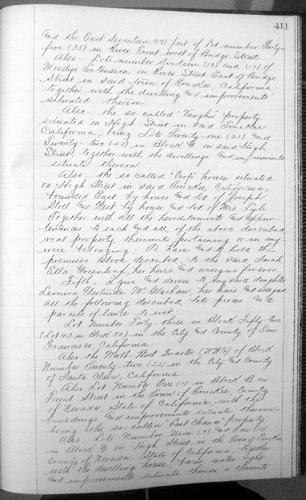 411
And the East Seventeen (17) feet of Lot number Thirty-
five (35) in River Front west of Bridge Street.
Also - Lots number sixteen (16) and (17) of
Moody's Extension on River Street East of Bridge
Street in said Town of Truckee, California
together with the dwelling and improvements
situated thereon.
Also - the so called "Vaughn" property
situated on High Street in said Truckee
California, being Lots Twenty-one (21) And
Twenty-two (22) in Block D on said High
Street, together with the dwellings And improvements
situate thereon.
Also - the so called house situated
on High Street in said Truckee, California,
bounded East by house And lot of Joseph
and West by house And lot of Mrs.
Together with all the hereditaments And Appur-
tenances to each And all of the above described
real property thereunto pertaining or in any-
wise belonging. To have And to hold the
premises above described to the said Sarah
Ella Greenleaf, her heirs And assigns forever.
Fifth. I give And devise to my said daughter
Gertrude her heirs And assigns
all the following described lots pieces And
parcels of land to wit:
Lot Number Forty three in Block Fifty two
(Lot 43 in Block 52) in the City And County of San
Francisco, California.
Also the North West Quarter (NW¼) of Block
Number Twenty-two (22), in the City And County
of Santa Clara, California.
Also Lot Number One (1) in Block D on
Front Street in the Town of Truckee, County
of Nevada, State of California, with the
buildings And improvements situate thereon
being the so called property.
Also, Lots Number Nine (9) And Ten (10)
in Block D on High Street in the Town of Truckee
County of Nevada, State of California, together
with the dwelling house, barn, water right
and improvements situate thereon